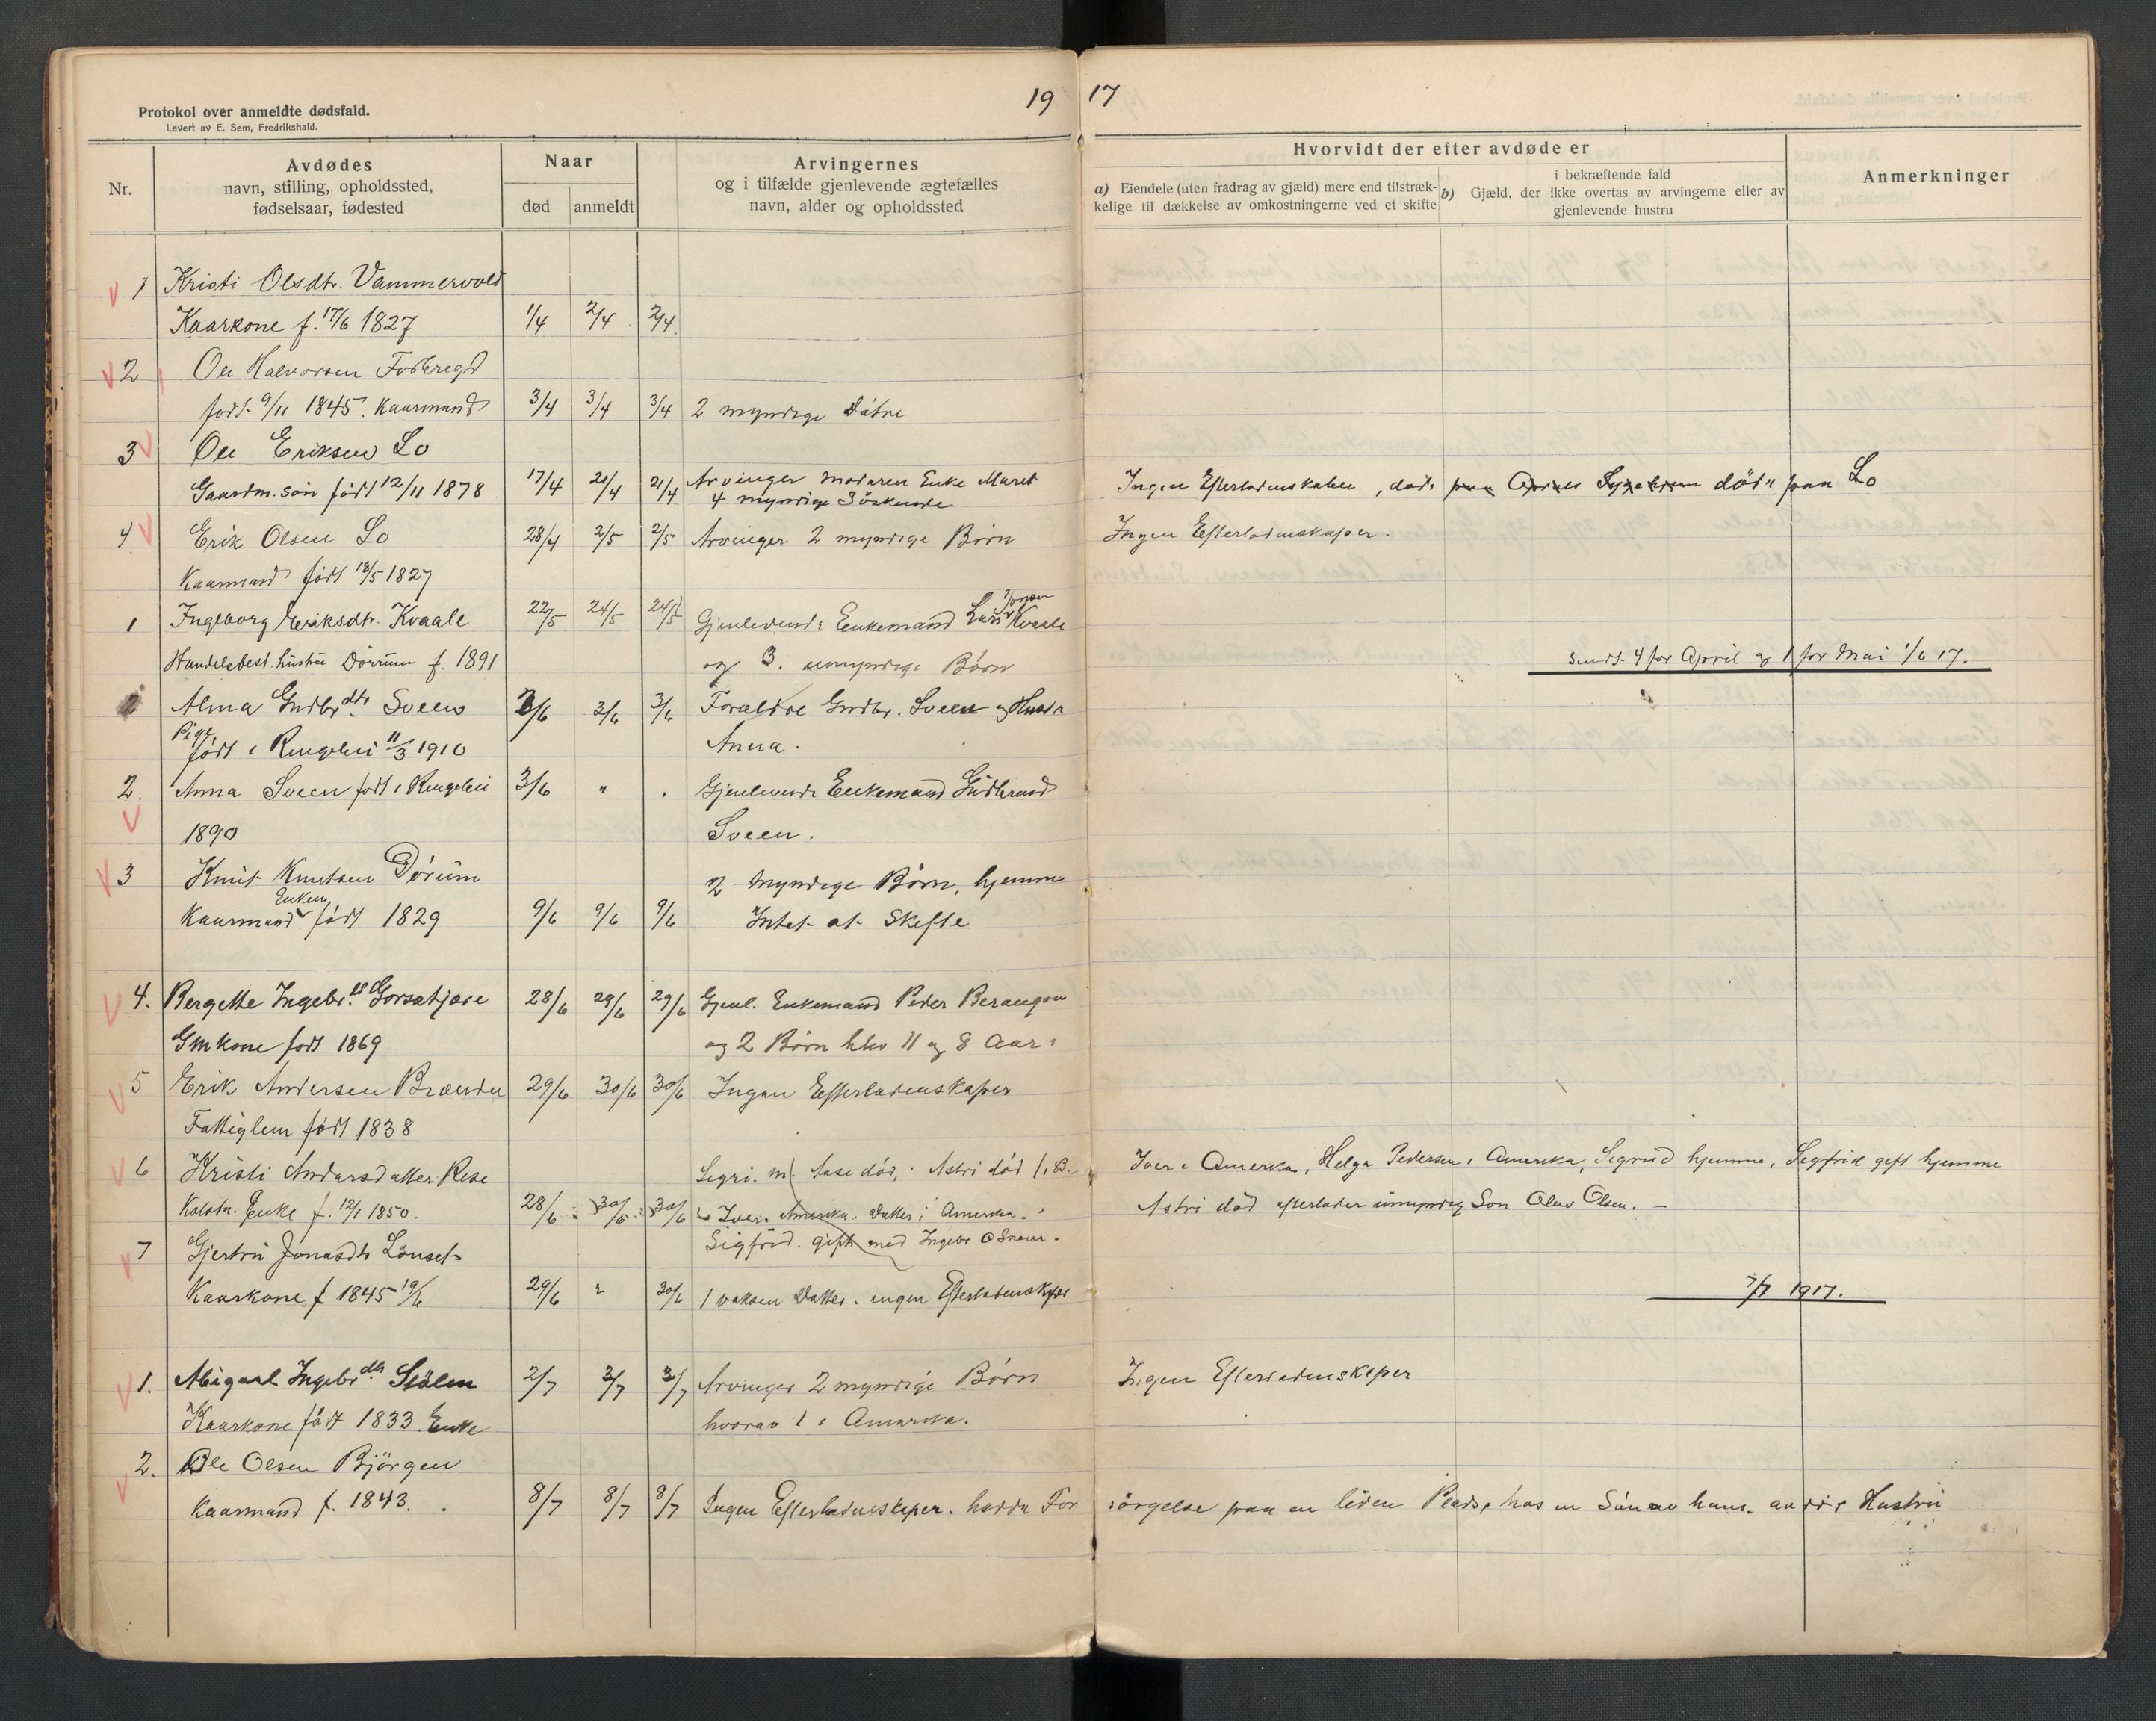 19 17
Protokol over anmeldte dødsfald.
Levert av E. Sem, Fredrikshald.
Nr.
Avdødes
navn, stilling, opholdssted,
fødselsaar, fødested
Naar
død
anmeldt
Arvingernes
og i tilfælde gjenlevende ægtefælles
navn, alder og opholdssted
Hvorvidt der efter avdøde er
a) Eiendele (uten fradrag av gjæld) mere end tilstræk-
kelige til dækkelse av omkostningerne ved et skifte
i bekræftende fald
b) Gjæld, der ikke overtas av arvingerne eller av
gjenlevende hustru
Anmerkninger
1 Kristi Olsdtr. Vammervold
Kaarkone f. 17/6 1827 1/4 2/4 2/4
2 Ole Halvorsen
født 9/11 1845. Kaarmand 3/4 3/4 3/4 2 myndige Døtre
3 Ole Eriksen Lo
Gaardm. søn født 12/11 1878 17/4 20/4 21/4 Arvinger moderen Enke Marit
4 myndige Søskende
Ingen Efterladenskaber, døde paa døde paa Lo
4 Erik Olsen Lo 28/4 2/5 2/5 Arvinger 2 myndige Børn Ingen Efterladenskaper.
Kaarmand født 18/5 1827
1 Ingeborg Eriksdtr. Kvaale 22/5 24/5 24/5 Gjenlevende Enkemand Lars Kvaale
Handelsbest. hustru Dørrum f. 1891 og 3. umyndige Børn
Sendt 4 for April og 1 for Mai 1/6 17.
Alma Gudbr dtr. Sveen 2/6 3/6 3/6 Forældre Gudbr. Sveen og Hustru
Pige
født i Ringebu 11/3 1910 Anna.
2. Anna Sveen født i Ringebu 3/6 " " Gjenlevende Enkemand Gudbrand
1890 Sveen.
3 Knut Knutsen Dørum 2 Myndige Børn, hjemme
Enkem
Kaarmand født 1829 9/6 9/6 9/6 Intet at Skifte
4. Bergitte Ingebr. Gorsetjære 28/6 29/6 29/6 Gjenl. Enkemand Peder
Gmkone født 1869 og 2 Børn hhv 11 og 8 Aar.
5 Erik Andersen Brænden 29/6 30/6 30/6 Ingen Efterladenskaper
Fattiglem født 1838
6 Kristi Andersdatter Rise Sigri. Aase død, Astri død
Iver i Amerika, Helga Pedersen i Amerika, Sigrud hjemme, Sigfrid gift hjemme
Enke f. 12/1 1850. 28/6 30/6 30/6 Iver Amerika. Datter i Amerika.
Astri død efterlader umyndig Søn Olav Olsen.
Sigfrid. gift med Ingebr O
7 Gjertru Jonasdtr Lønset
Kaarkone f 1845 19/6 29/6 " 30/6 1 voksen Datter. ingen Efterladenskaper
7/7 1917.
1. Abigael Ingebr. dtr. Sjølen 2/7 3/7 3/7 Arvinger 2 myndige Børn Ingen Efterladenskaper
Kaarkone født 1833. Enke hvorav 1 i Amerika.
2. Ole Olsen Bjørgen
Kaarmand f. 1843. 8/7 8/7 8/7 Ingen Efterladenskaper. hadde For sørgelse paa en liden Plads, hos en Søn av hans. andre Hustru